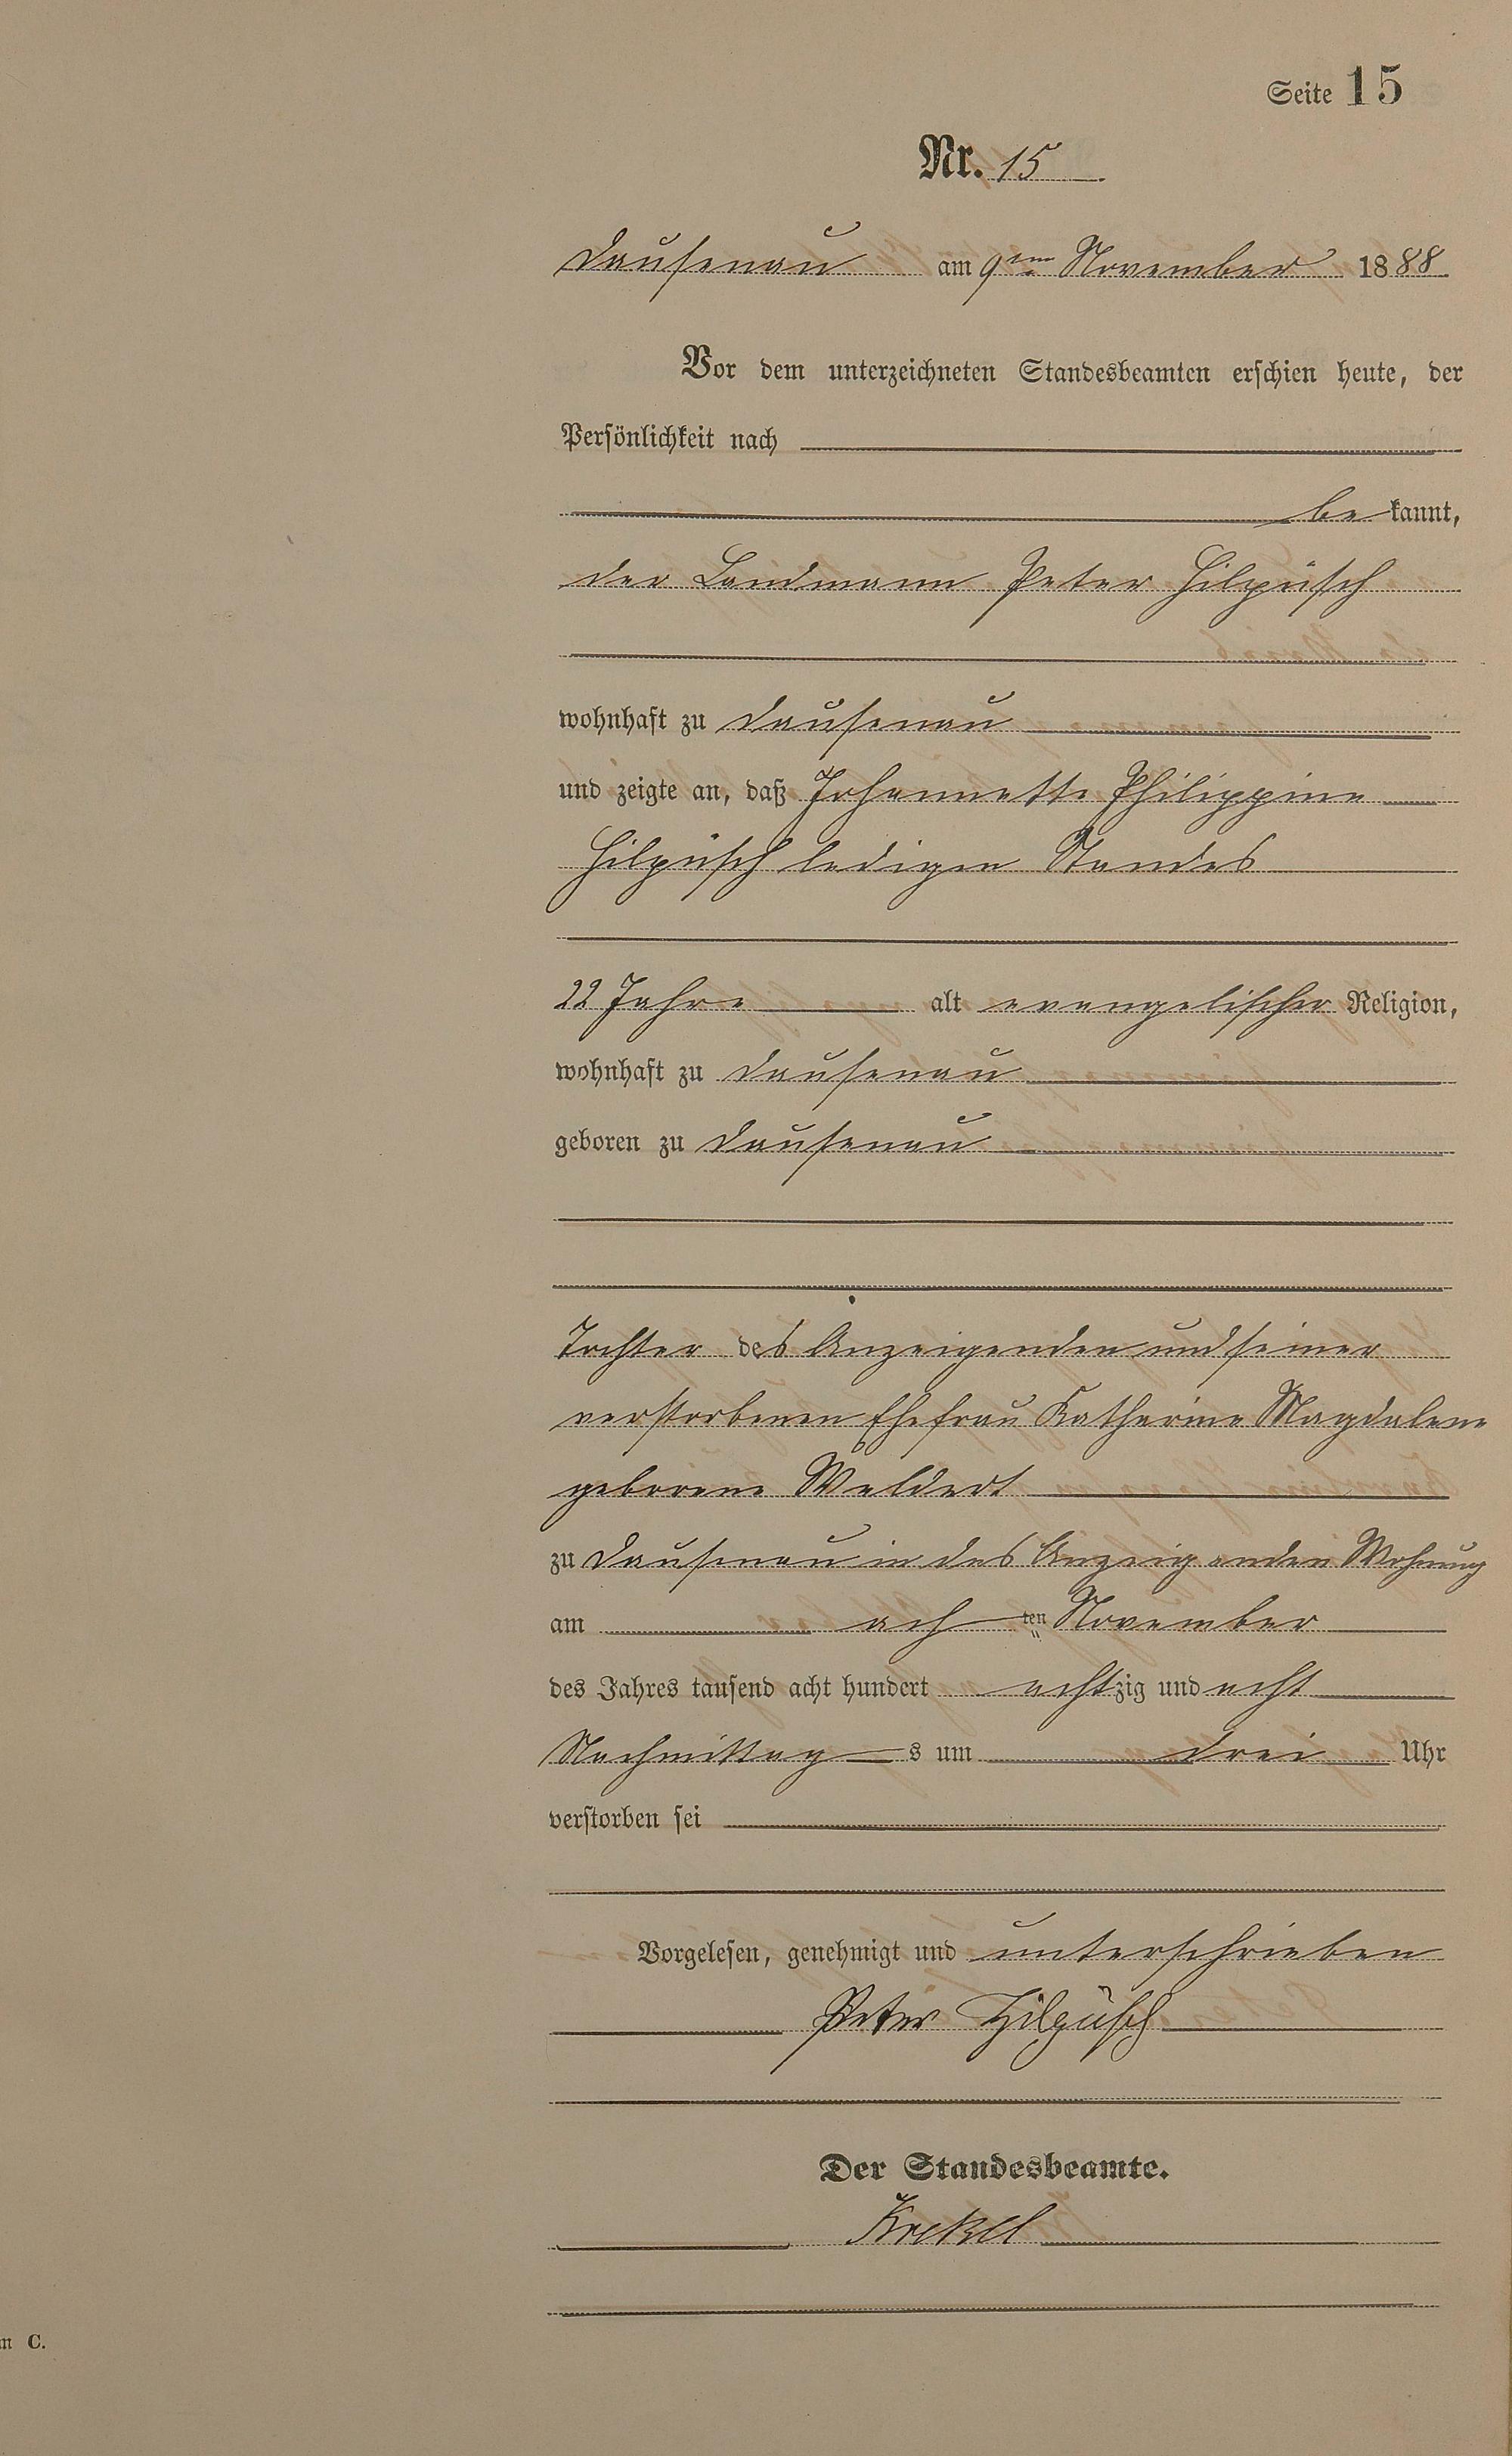 Seite 15
Nr. 15
Dausenau am 9ten November 1888
Vor dem unterzeichneten Standesbeamten erschien heute, der
Persönlichkeit nach
be kannt,
der Landmann Peter Hilpüsch
wohnhaft zu Dausenau
und zeigte an, daß Johannette Philippine
Hilpüsch ledigen Standes
22 Jahre alt evangelischer Religion,
wohnhaft zu Dausenau
geboren zu Dausenau
Tochter des Anzeigenden und seiner
verstorbenen Ehefrau Katharine Magdalene
geborene Weldert
zu Dausenau in des Anzeigenden Wohnung
am ach ten November
des Jahres tausend acht hundert achtzig und acht
Nachmittag s um drei Uhr
verstorben sei
Vorgelesen, genehmigt und unterschrieben
Peter Hilpüsch
Der Standesbeamte.
Krekel
C.